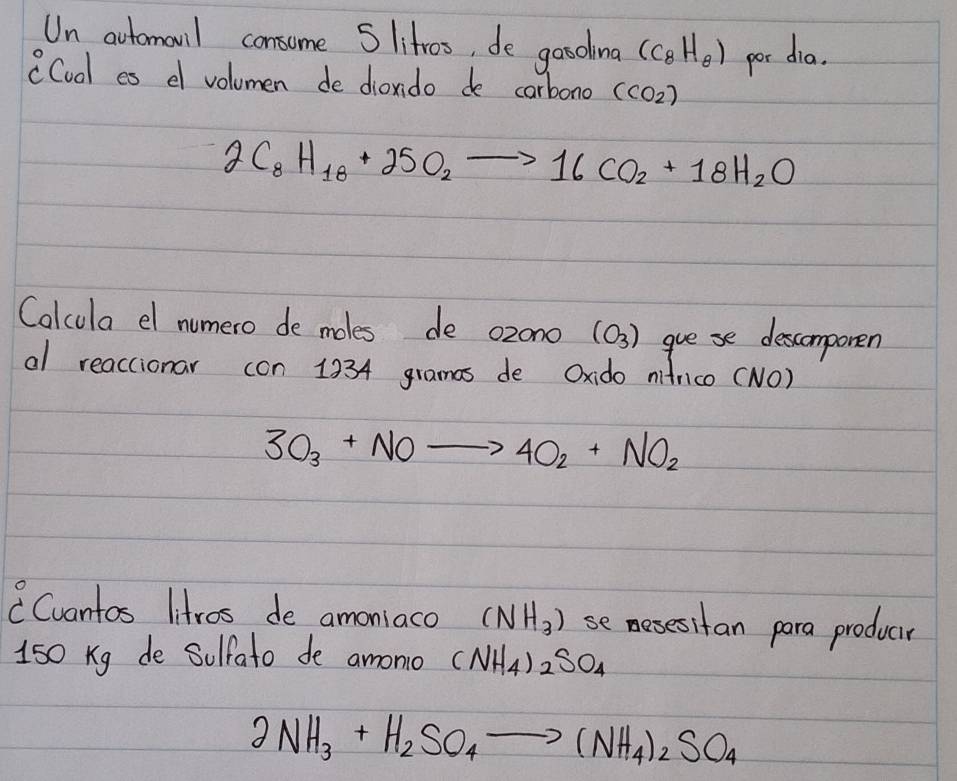 Un automovil consume 5 litros, de gasolina (C₈H₈) por dia.
¿Cual es el volumen de dioxido de carbono (CO₂)
2C₈H₁₈ + 25O₂ → 16CO₂ + 18H₂O
Calcula el numero de moles de ozono (O₃) que se descomponen
al reaccionar con 1234 gramos de Oxido nitrico (NO)
3O₃ + NO → 4O₂ + NO₂
¿Cuantos litros de amoniaco (NH₃) se nesesitan para producir
150 Kg de Sulfato de amonio (NH₄)₂SO₄
2NH₃ + H₂SO₄ → (NH₄)₂SO₄